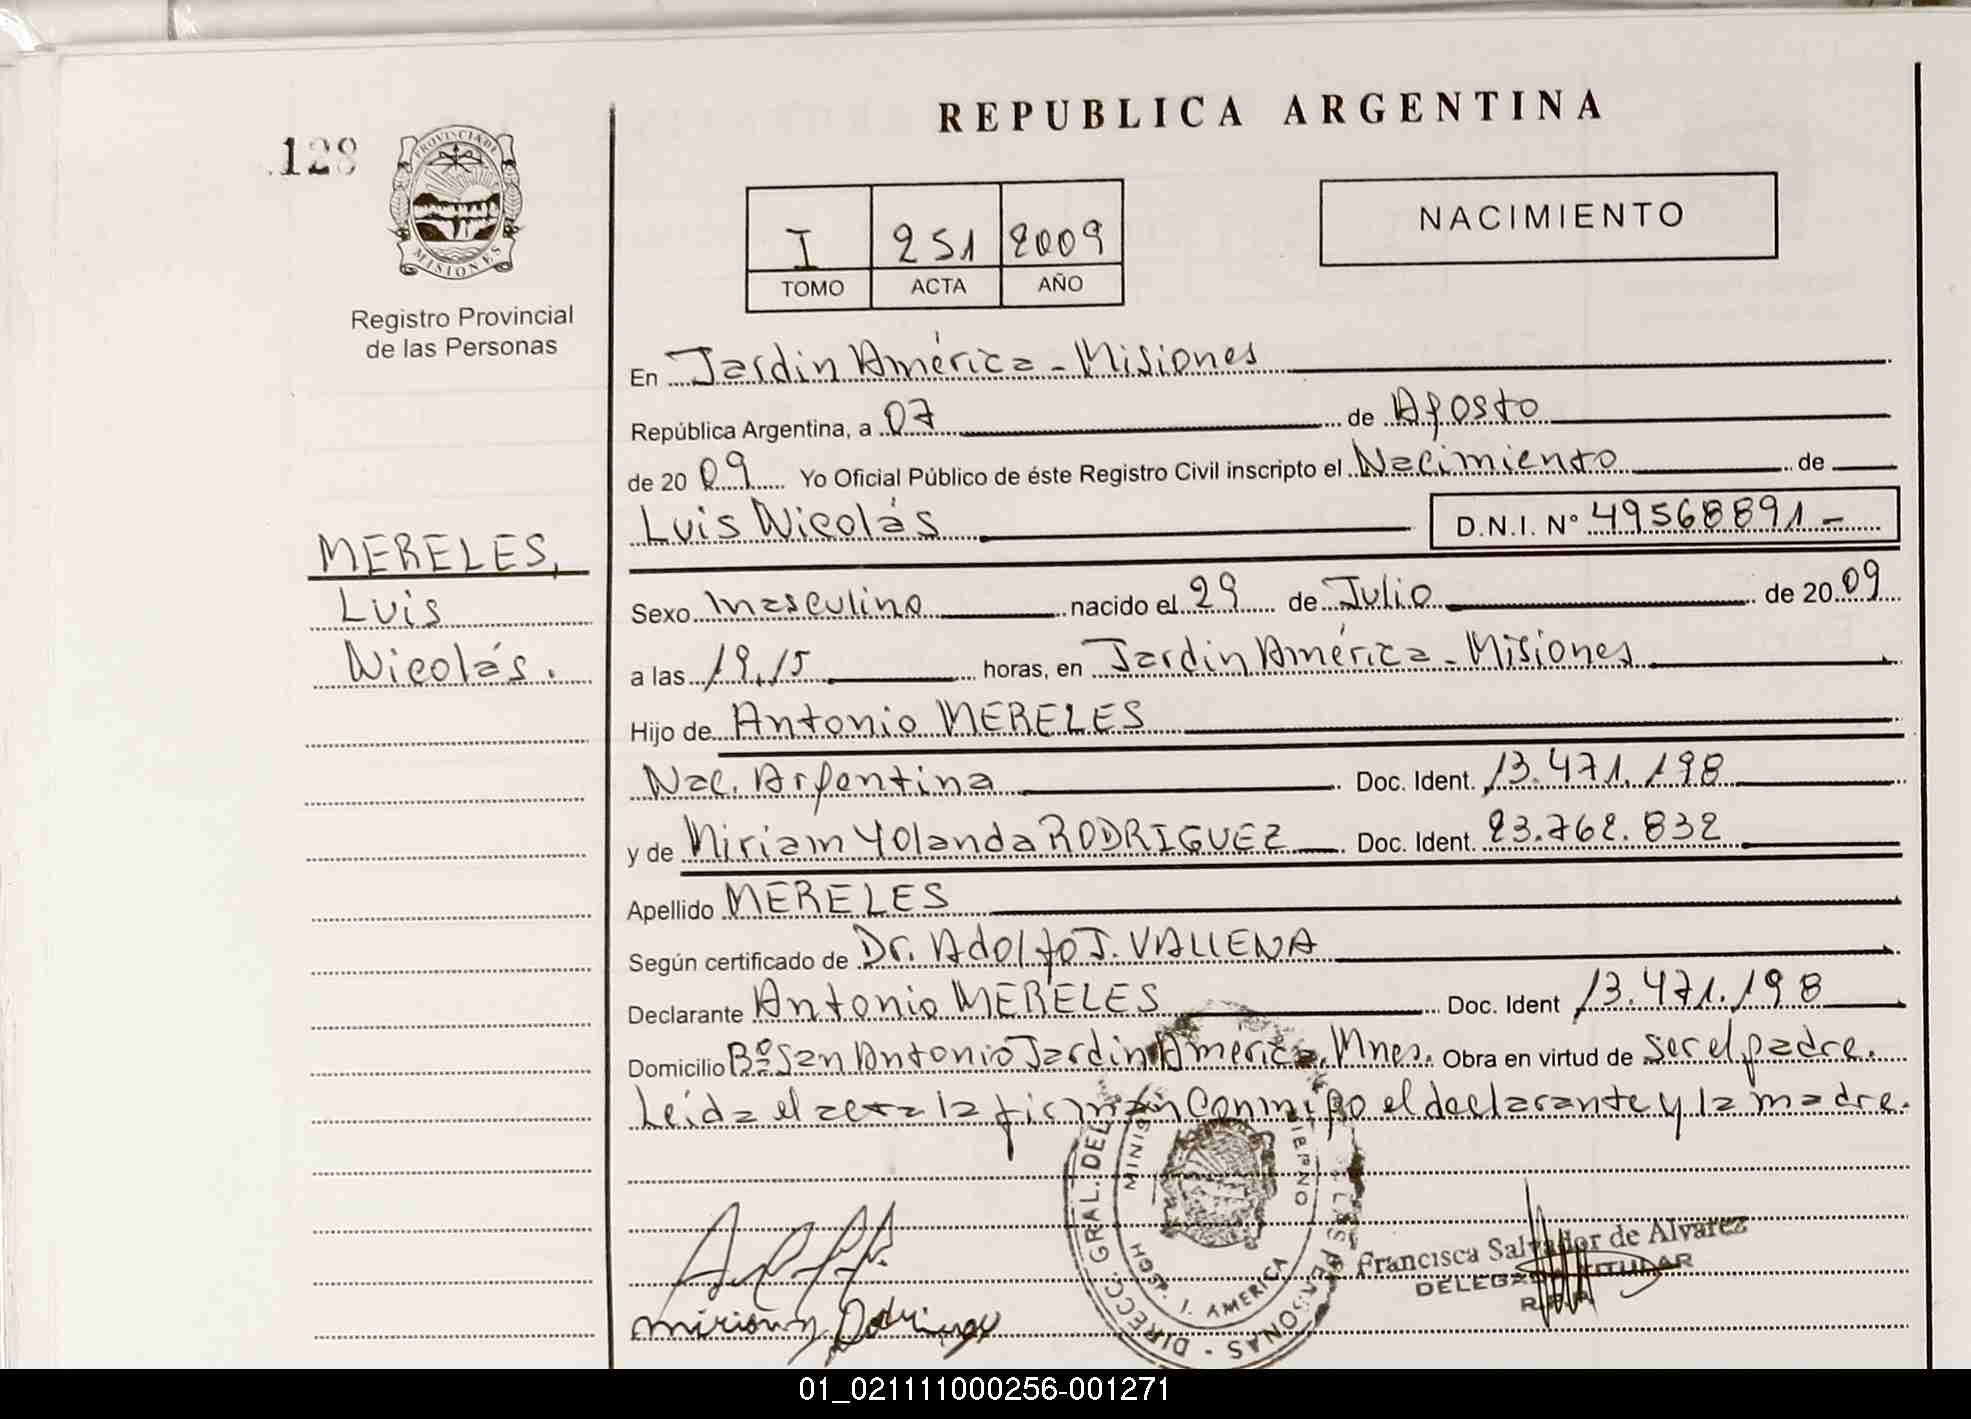 REPUBLICA ARGENTINA
128
PROVINCIA DE MISIONES
Registro Provincial
de las Personas
I 251 2009
TOMO ACTA AÑO
NACIMIENTO
MERELES,
Luis
Nicolás.
En Jardin América - Misiones
República Argentina, a 07 de Agosto
de 20 09 Yo Oficial Público de éste Registro Civil inscripto el Nacimiento de
Luis Nicolás D.N.I. N° 49568891-
Sexo masculino nacido el 29 de Julio de 20 09
a las 19,15 horas, en Jardin América - Misiones
Hijo de Antonio MERELES
Nac. Argentina Doc. Ident. 13.471.198
y de Miriam Yolanda RODRIGUEZ Doc. Ident. 23.762.832
Apellido MERELES
Según certificado de Dr. Adolfo J. VALLENA
Declarante Antonio MERELES Doc. Ident 13.471.198
Domicilio Bº San Antonio Jardin América, Mnes. Obra en virtud de ser el padre.
Leída el acta la firman conmigo el declarante y la madre.
DIRECC. GRAL. DEL PERSONAS
HOSP. J. AMERICA
Francisca Salvador de Alvarez
DELEGADA TITULAR
R.P.P.
Miriam y Rodriguez
01_021111000256-001271